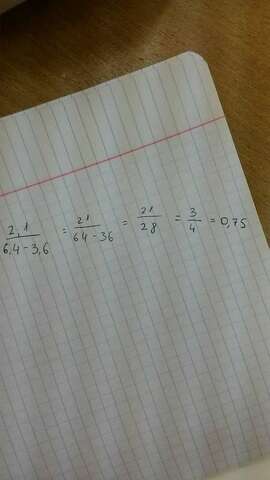 2,1/(6,4-3,6) = 21/(64-36) = 21/28 = 3/4 = 0,75